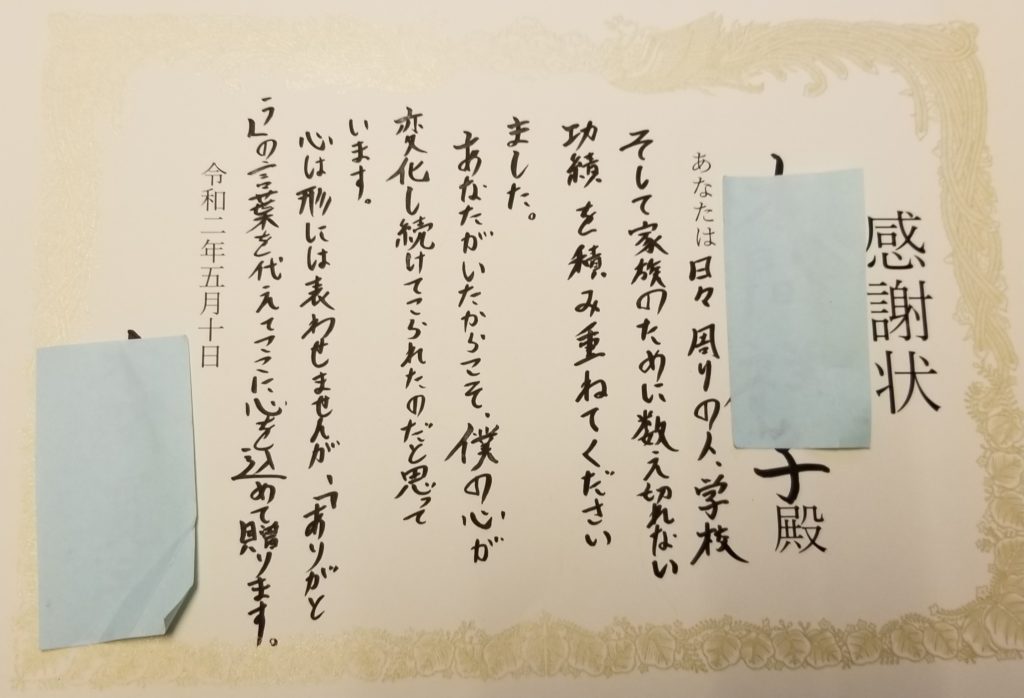 感謝状
子殿
あなたは日々周りの人、学校
そして家族のために数え切れない
功績を積み重ねてください
ました。
あなたがいたからこそ、僕の心が
変化し続けてこられたのだと思って
います。
心は形には表わせませんが、「ありがと
う」の言葉を代えてここに心を込めて贈ります。
令和二年五月十日